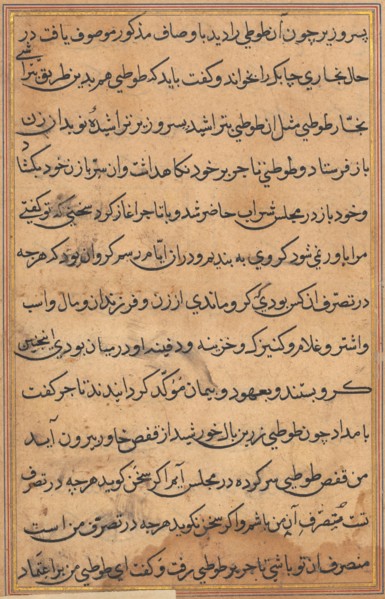 پسر وزیر چون آن طوطی را دید باوصاف مذکور موصوف یافت در
حال نجاری چابک را بخواند و کفت باید که طوطیی هم بدین طریق بتراشی
نجار طوطیی مثل ان طوطیی بتراشید پسر وزیر تراشیدهٔ نو بدان زن
باز فرستاد و طوطیی تاجر بر خود نکاهداشت وان سر باز زن خود بکشاد
و خود باز در مجلس شراب حاضر شد و با تاجر اغاز کرد سخنی که تو کفتی
مرا باور نمی شود کروی به بندیم و دران ایام رسم کروان بود که هرچه
در تصرف انکس بودی کرو ماندی از زن و فرزندان و مال و اسب
و اشتر و غلام و کنیزک و خزینه و دفینه او در میان بودی اینچنین
کرو بستند و بعهود و پیمان مؤکد کردانیدند تاجر کفت
بامداد چون طوطیی زرین بال خورشید از قفص خاور بیرون آید
من قفص طوطیی سر کرده در مجلس آیم اکر سخن کوید هرچه در تصرف
تست متصرف آن من باشم و اکر سخن نکوید هرچه در تصرف من است
متصرف ان تو باشی تاجر بر طوطیی رفت و کفت ای طوطیی من بر اعتماد